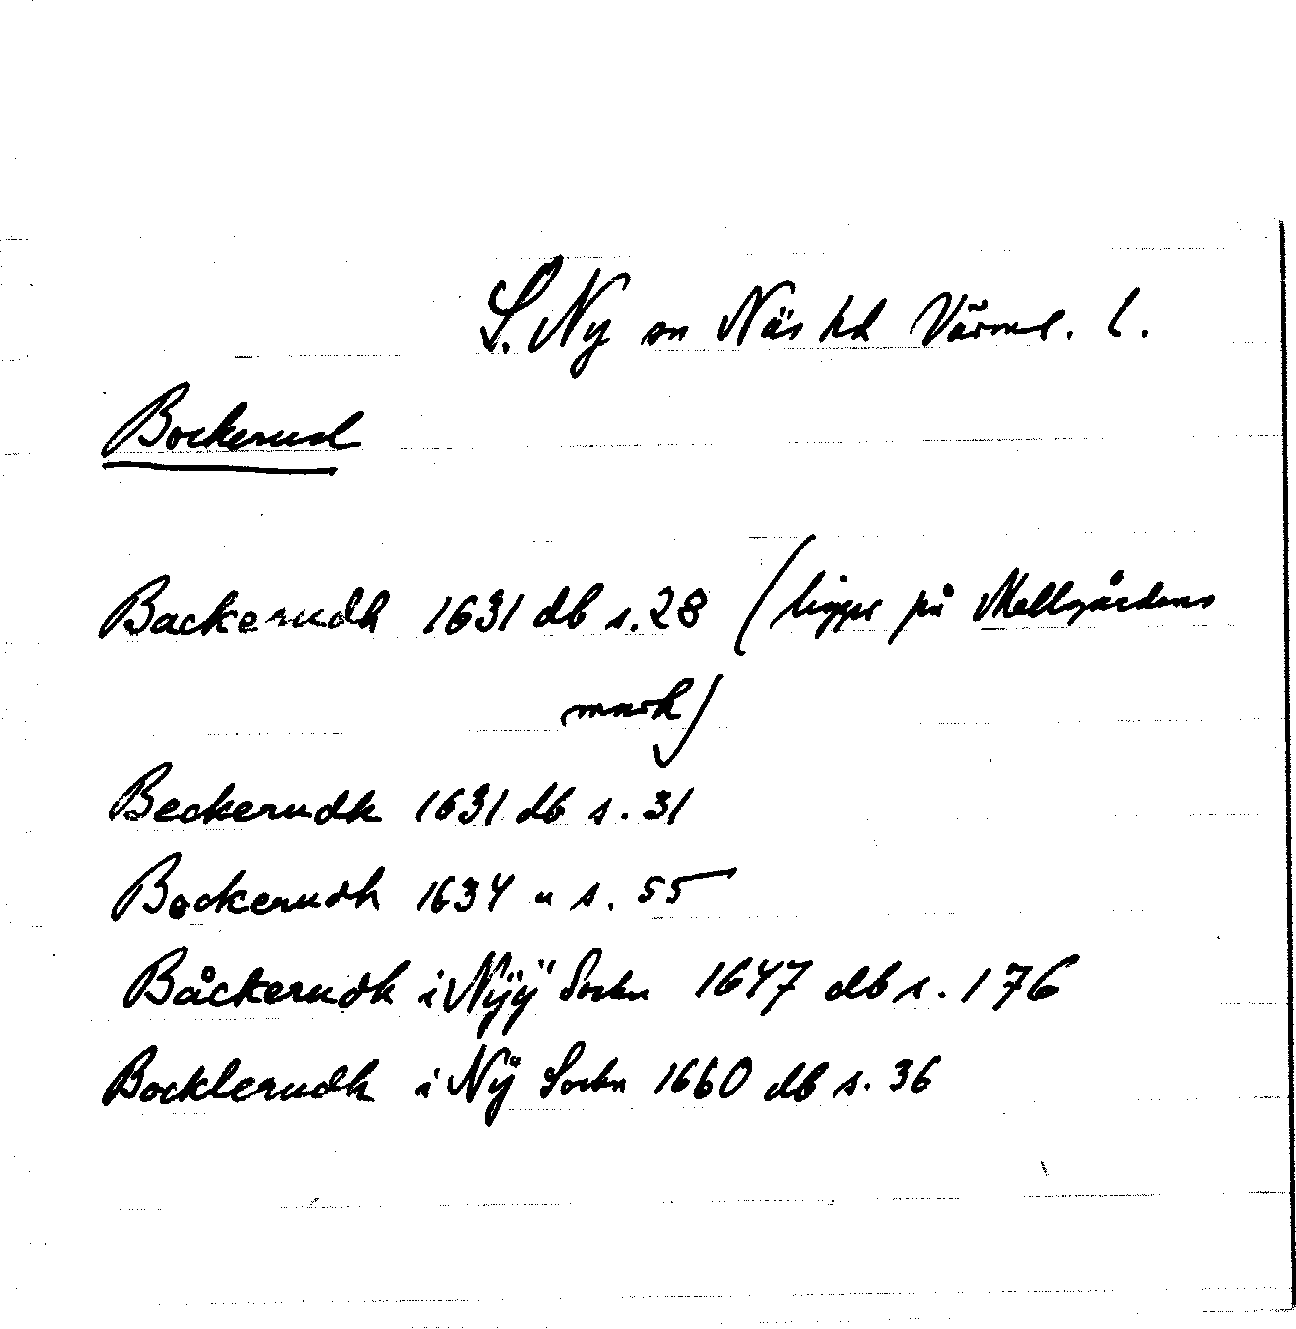 S. Ny sn Näs hd Värml. l.
Bockerud
Backerudh 1631 db s. 28 (ligger på Mellgårdens
mark)
Beckerudh 1631 db s. 31
Bockerudh 1634 " s. 55
Båckerudh i Nÿÿ Sockn 1647 db s. 176
Bocklerudh i Nÿ Sockn 1660 db s. 36